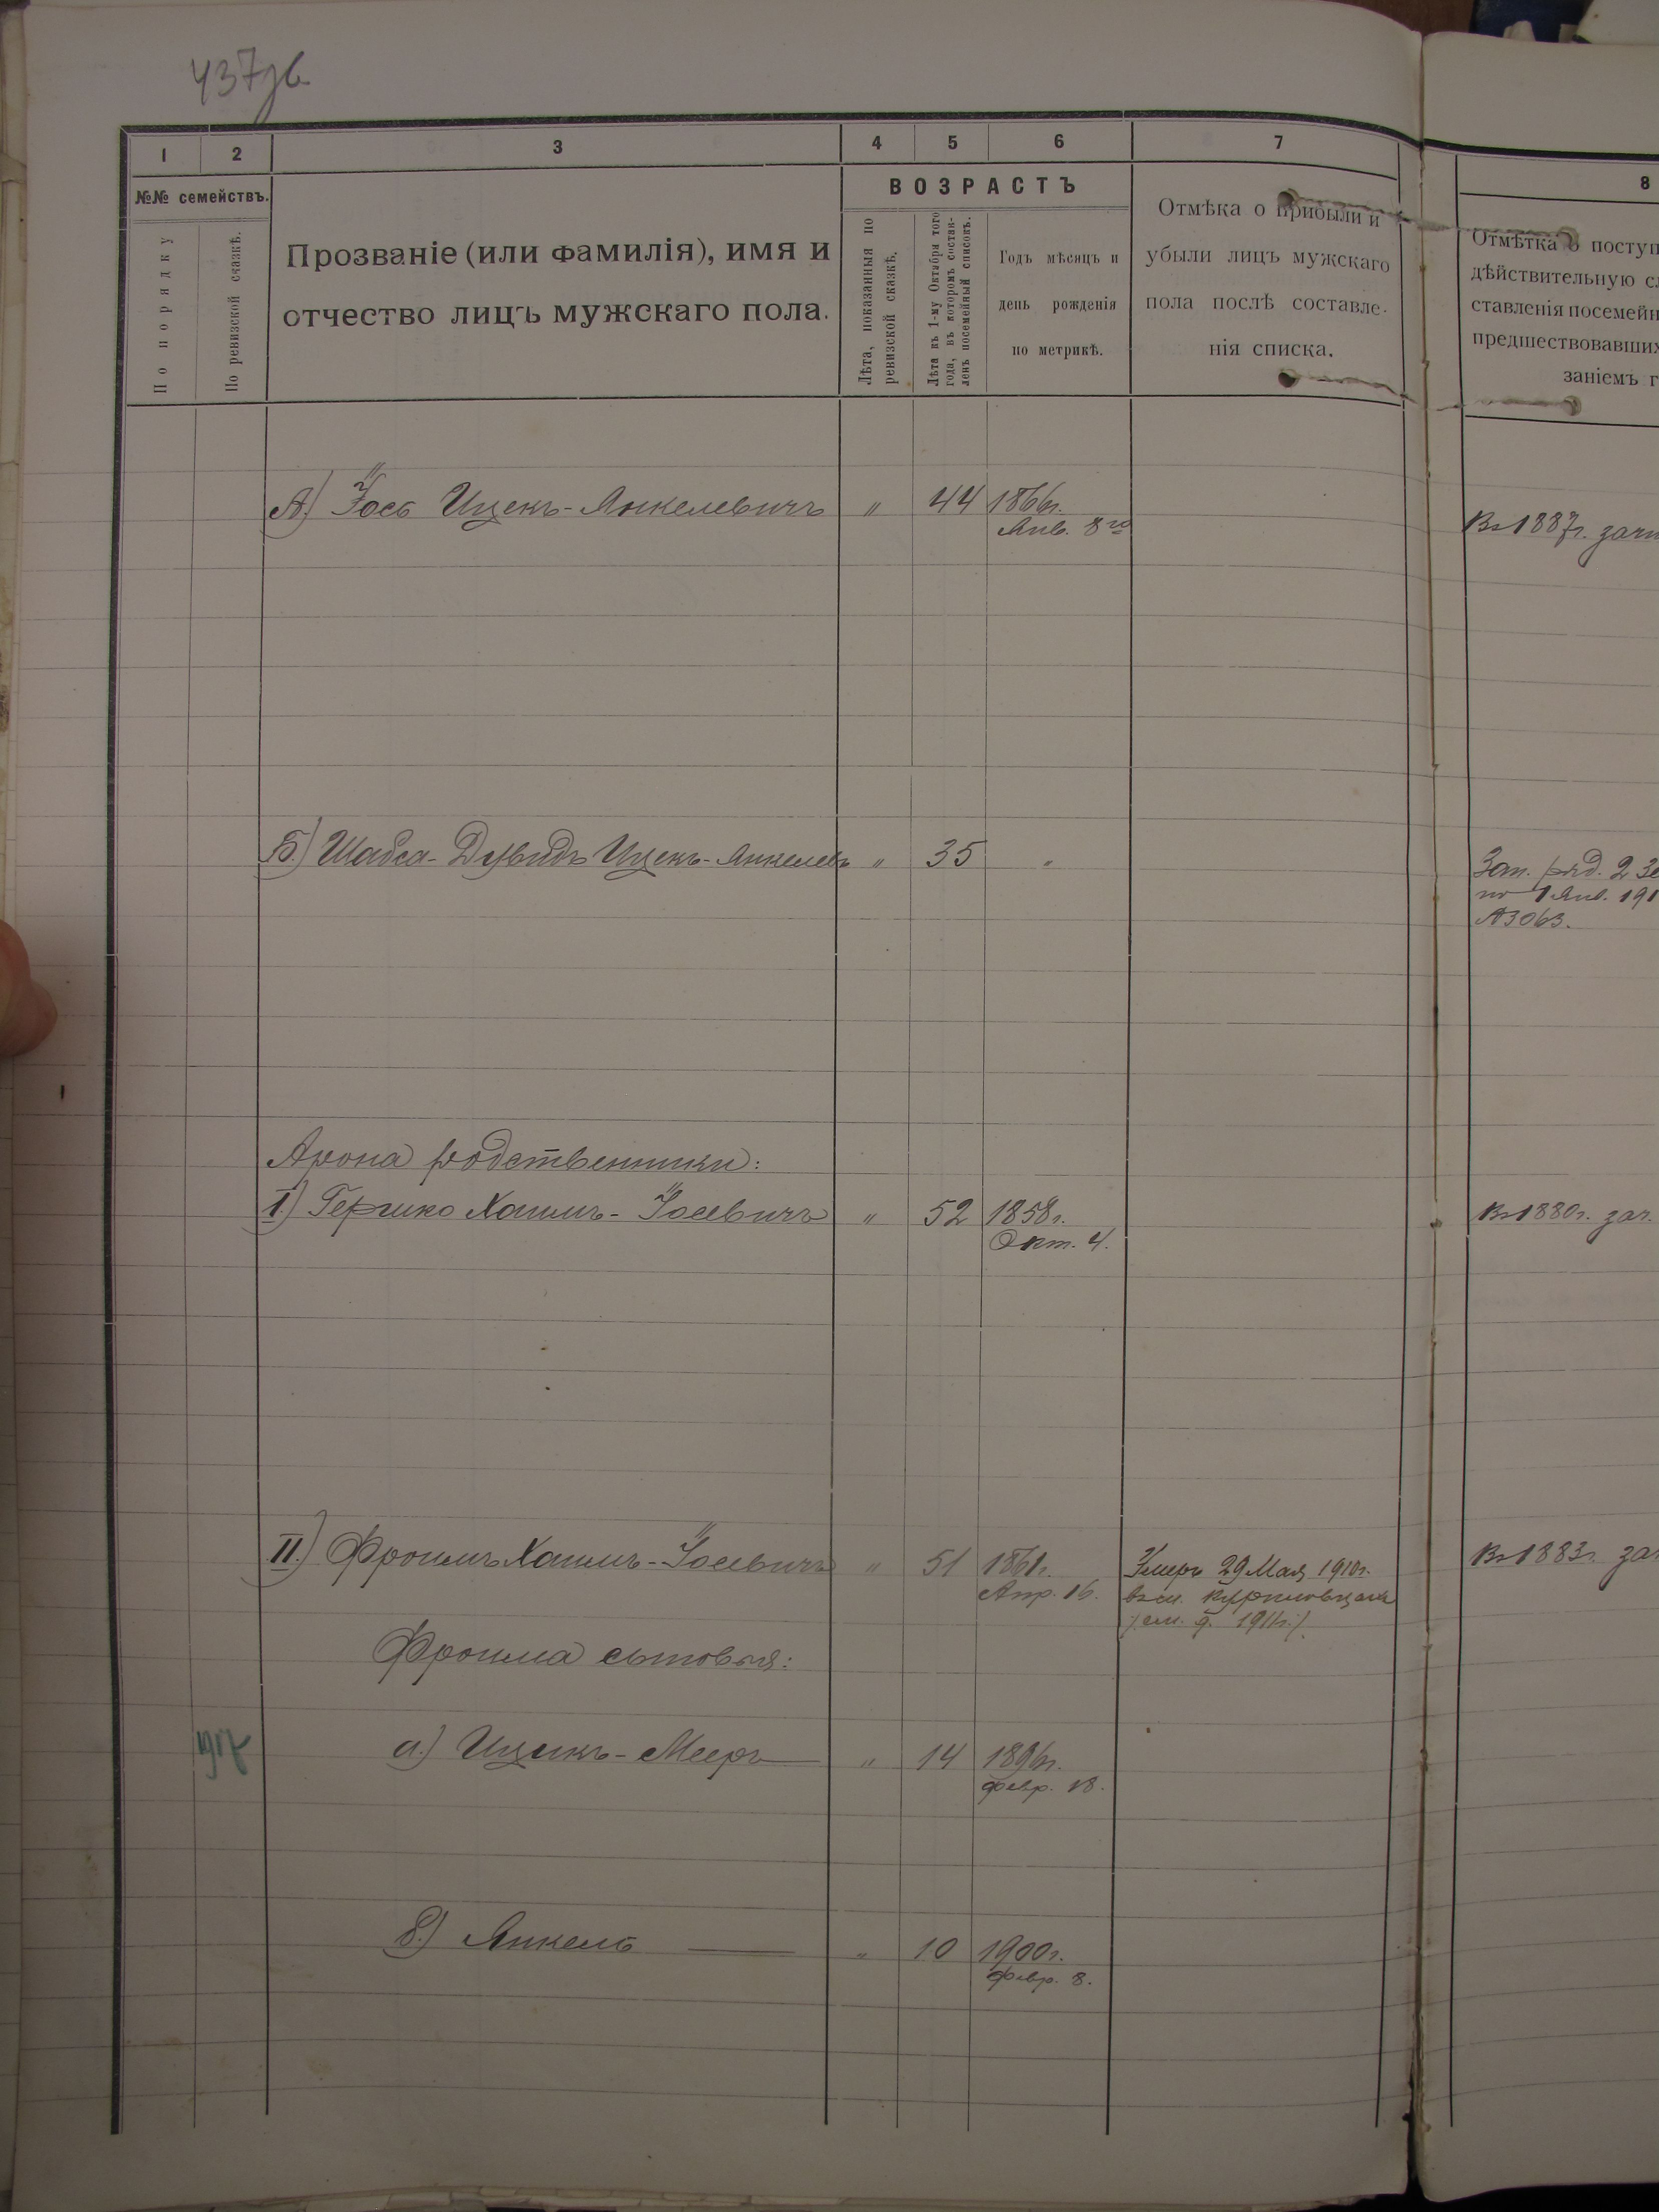 437об.
1 2 3 4 5 6 7 8
№№ семействъ.
По порядку
По ревизской сказкѣ.
Прозваніе (или фамилія), имя и
отчество лицъ мужскаго пола.
ВОЗРАСТЪ
Лѣта, показанныя по
ревизской сказкѣ.
Лѣта къ 1-му Октября того
года, въ которомъ состав-
ленъ посемейный списокъ.
Годъ мѣсяцъ и
день рожденія
по метрикѣ.
Отмѣка о прибыли и
убыли лицъ мужскаго
пола послѣ составле-
нія списка.
Отмѣтка о поступ
дѣйствительную сл
ставленія посемейн
предшествовавших
заніемъ г
А.) Іось Ицекъ-Янкелевичъ " 44 1866г.
Янв. 8го
Въ 1887г. зачи
Б.) Шабса-Дувидъ Ицекъ-Янкелев " 35 "
Зап. ряд. 2
по 1 Янв. 191
А3063.
Арона родственники:
I.) Гершко Хаимъ-Іосевичъ " 52 1858г.
Окт. 4.
Въ 1880г. зач.
II.) Фроимъ Хаимъ-Іосевичъ " 51 1861г.
Апр. 16.
Умеръ 29 Мая 1910г.
въ м.
1911г.
Въ 1883г. зач
Фроима сыновья:
1917
а.) Ицикъ-Мееръ " 14 1896г.
февр. 18.
б.) Янкель " 10 1900г.
февр. 8.